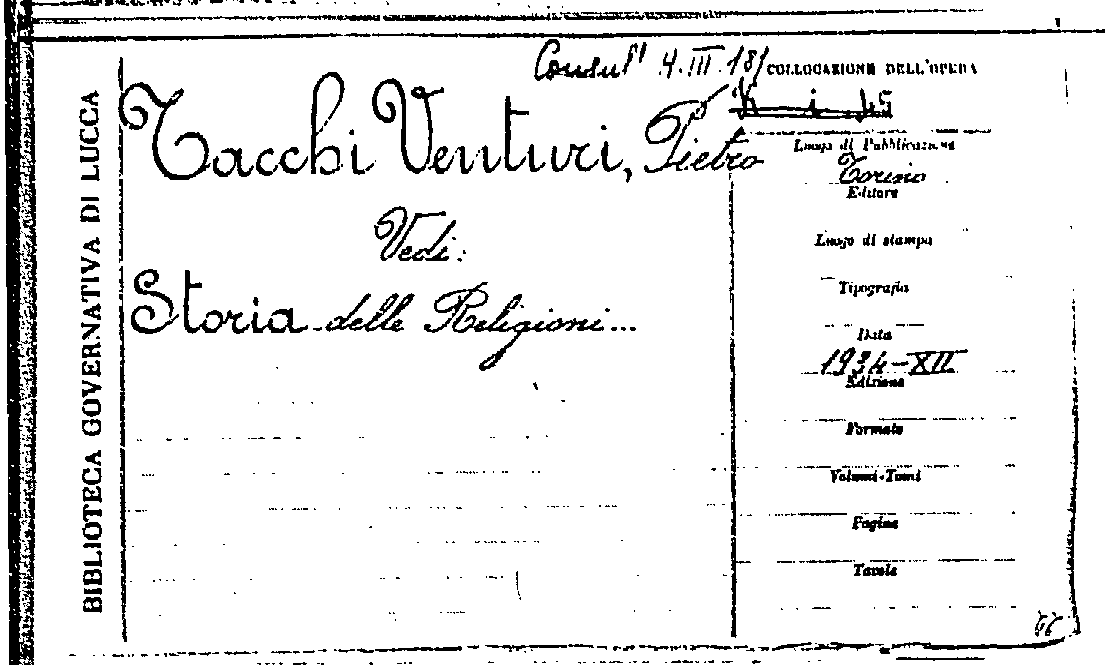 BIBLIOTECA GOVERNATIVA DI LUCCA
Consul' 4.III.181
COLLOCAZIONE DELL'OPERA
Tacchi Venturi, Pietro
Vedi:
Storia delle Religioni...
Luogo di Pubblicazione
Torino
Editore
Luogo di stampa
Tipografia
Data
1934-XII
Edizione
Formato
Volumi-Tomi
Pagine
Tavole